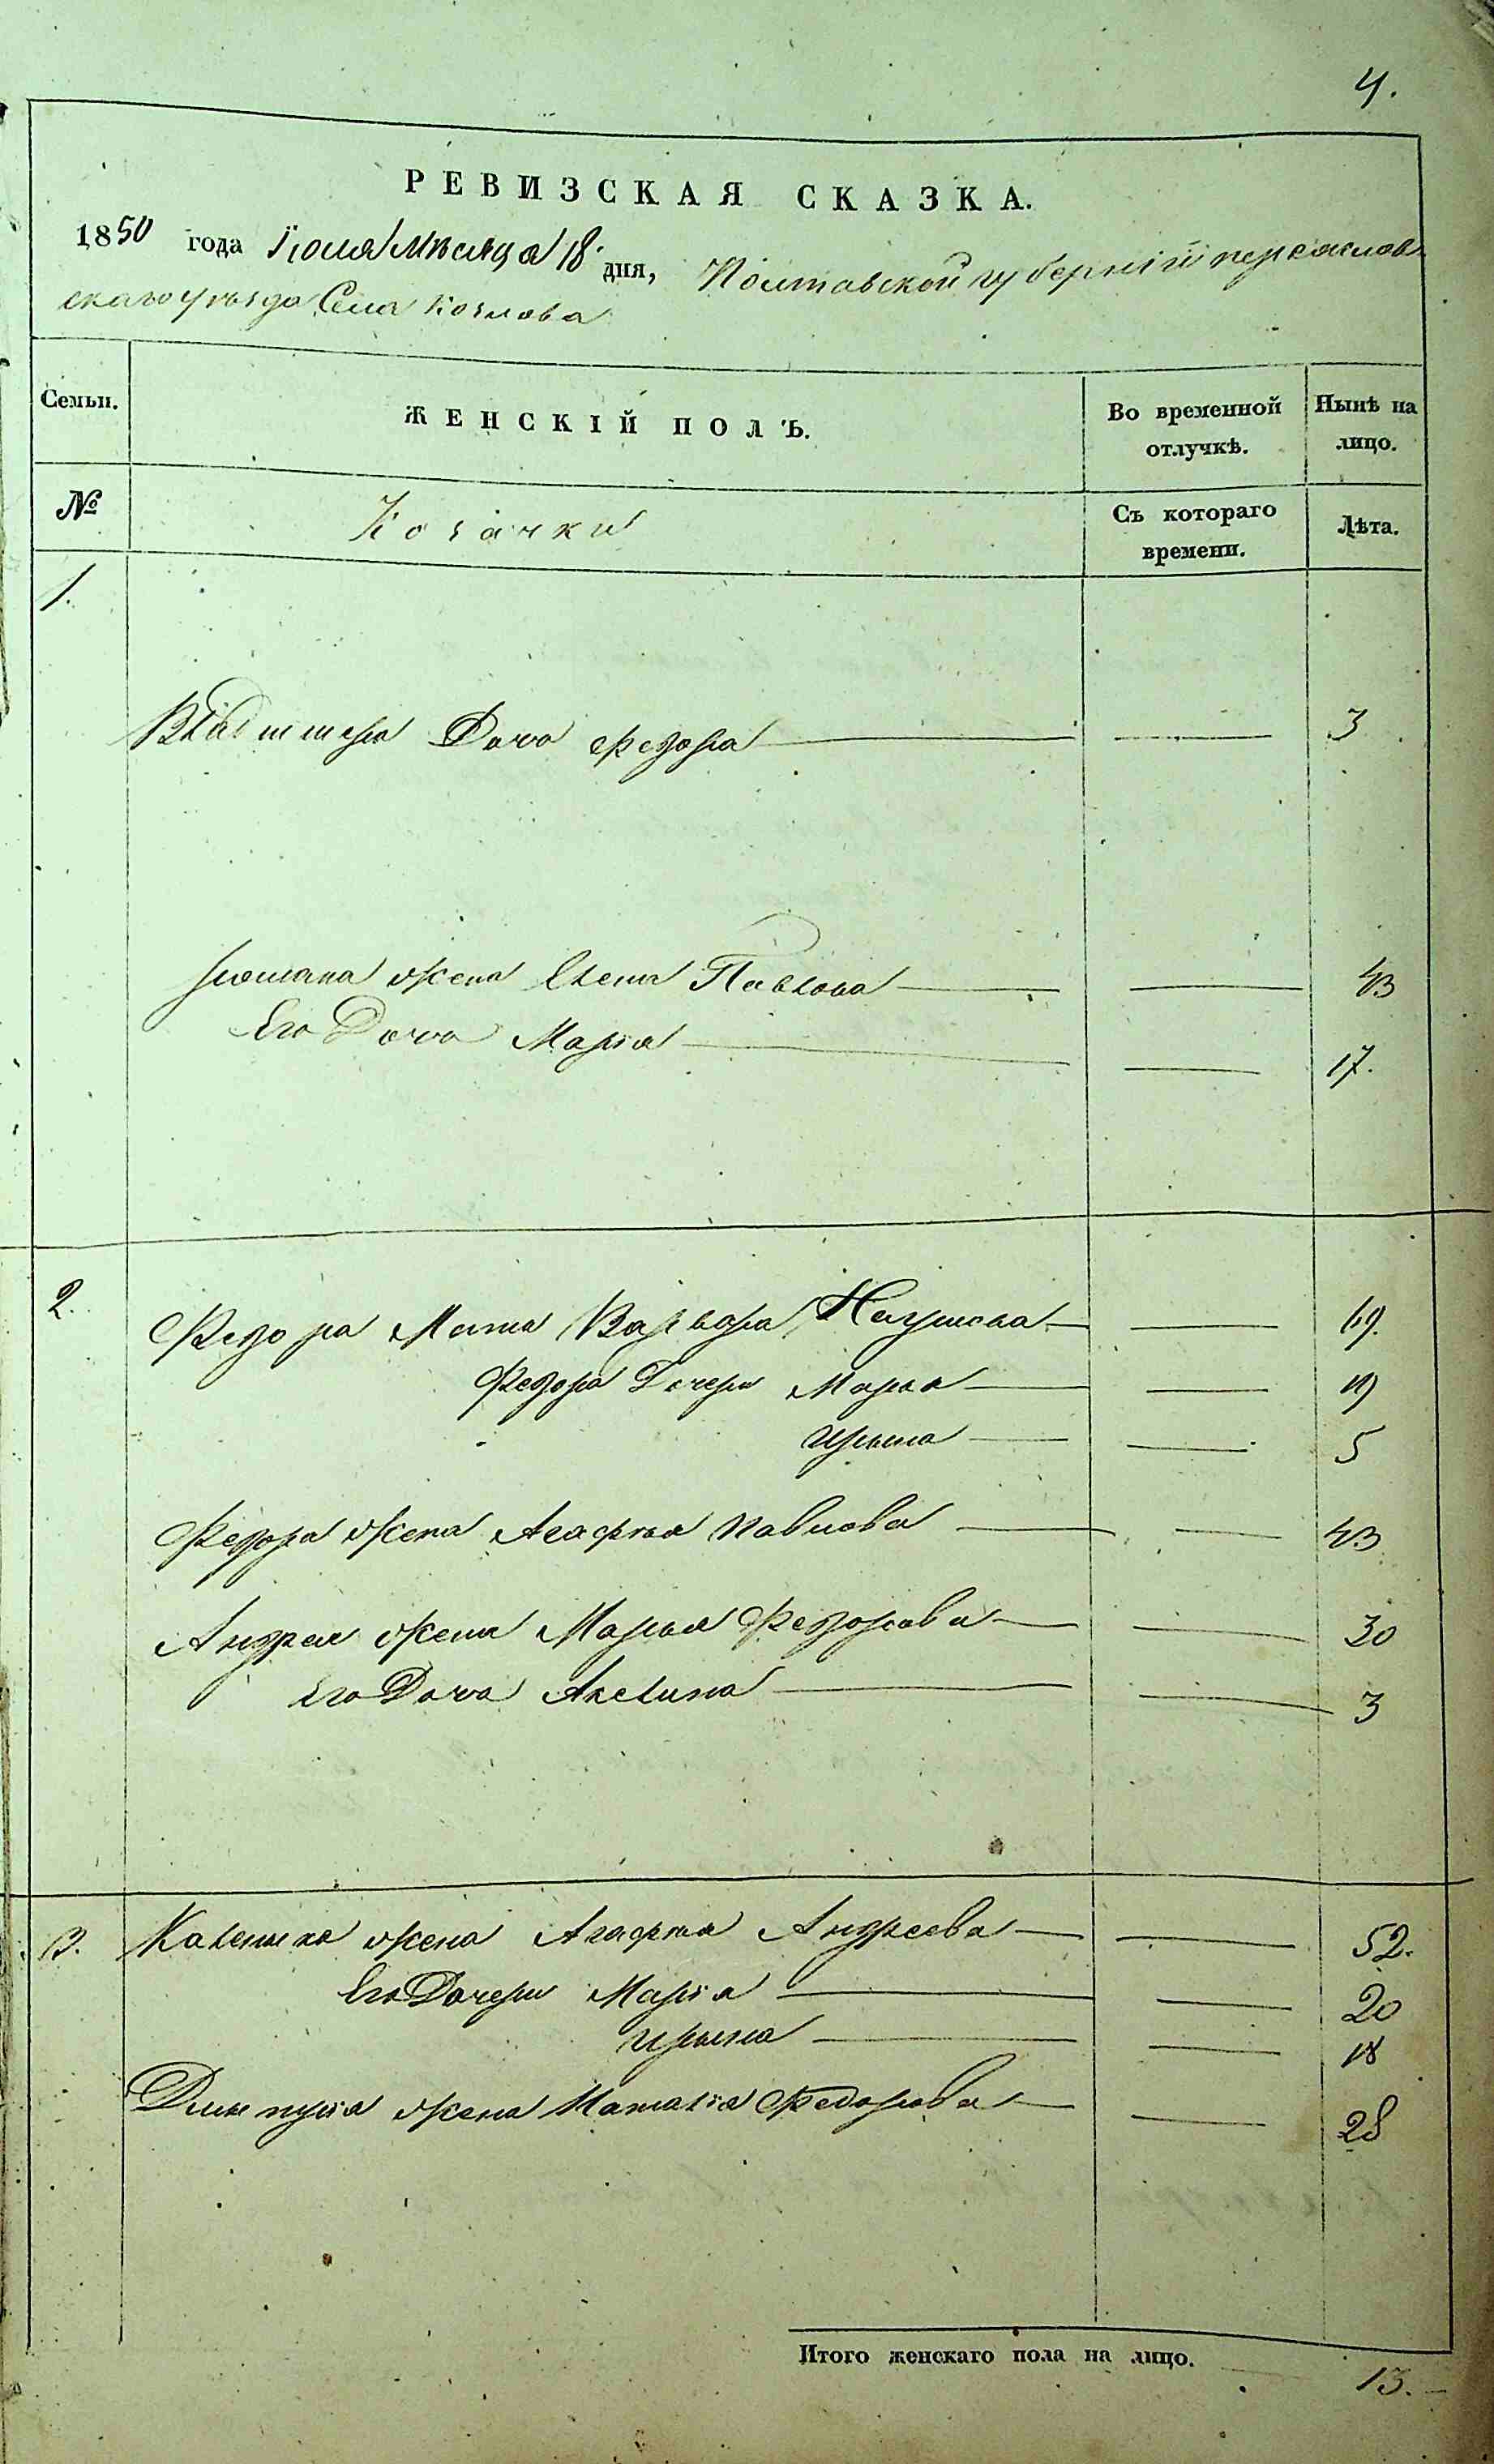 4.
РЕВИЗСКАЯ СКАЗКА.
1850 года Іюля Мѣсяца 18 дня, Полтавской губерніи переяслов
скаго уѣзда Села Козлова
Семьи. ЖЕНСКІЙ ПОЛЪ. Во временной отлучкѣ. Нынѣ на лицо.
№ Козачки Съ котораго времени. Лѣта.
1.
Дочь Федора — — 3
Романа жена Елена Павлова — — 43
Его Дочь Марія — — 17.
2. Федора Мать Варвара Наумова — — 69.
Федора Дочери Марья — — 19
Ирына — — 5
Федора жена Агафья Павлова — — 43
Андрея жена Марья Федорова — — 30
Его Дочь Акелина — — 3
3. Каленика жена Агафья Андреева — — 52.
Его Дочери Марія — — 20
Ирына — — 18
Дмытрія жена Наталія Федорова — — 28
Итого женскаго пола на лицо. 13.—